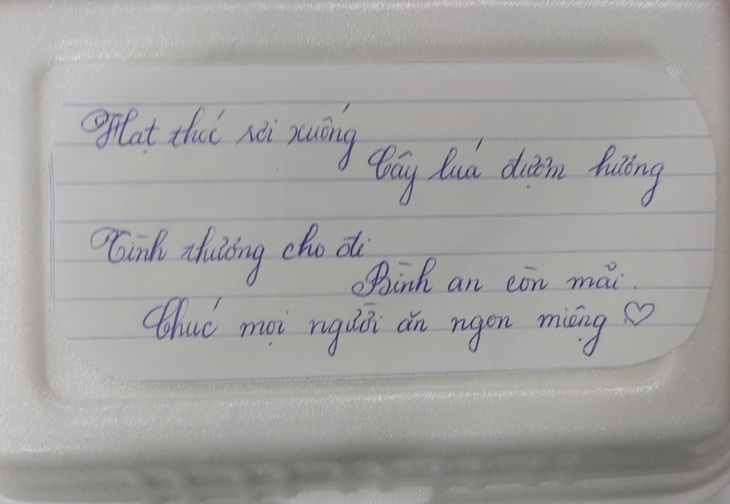 Hạt thóc rơi xuống
Cây lúa đượm hương
Tình thương cho đi
Bình an còn mãi.
Chúc mọi người ăn ngon miệng ♡